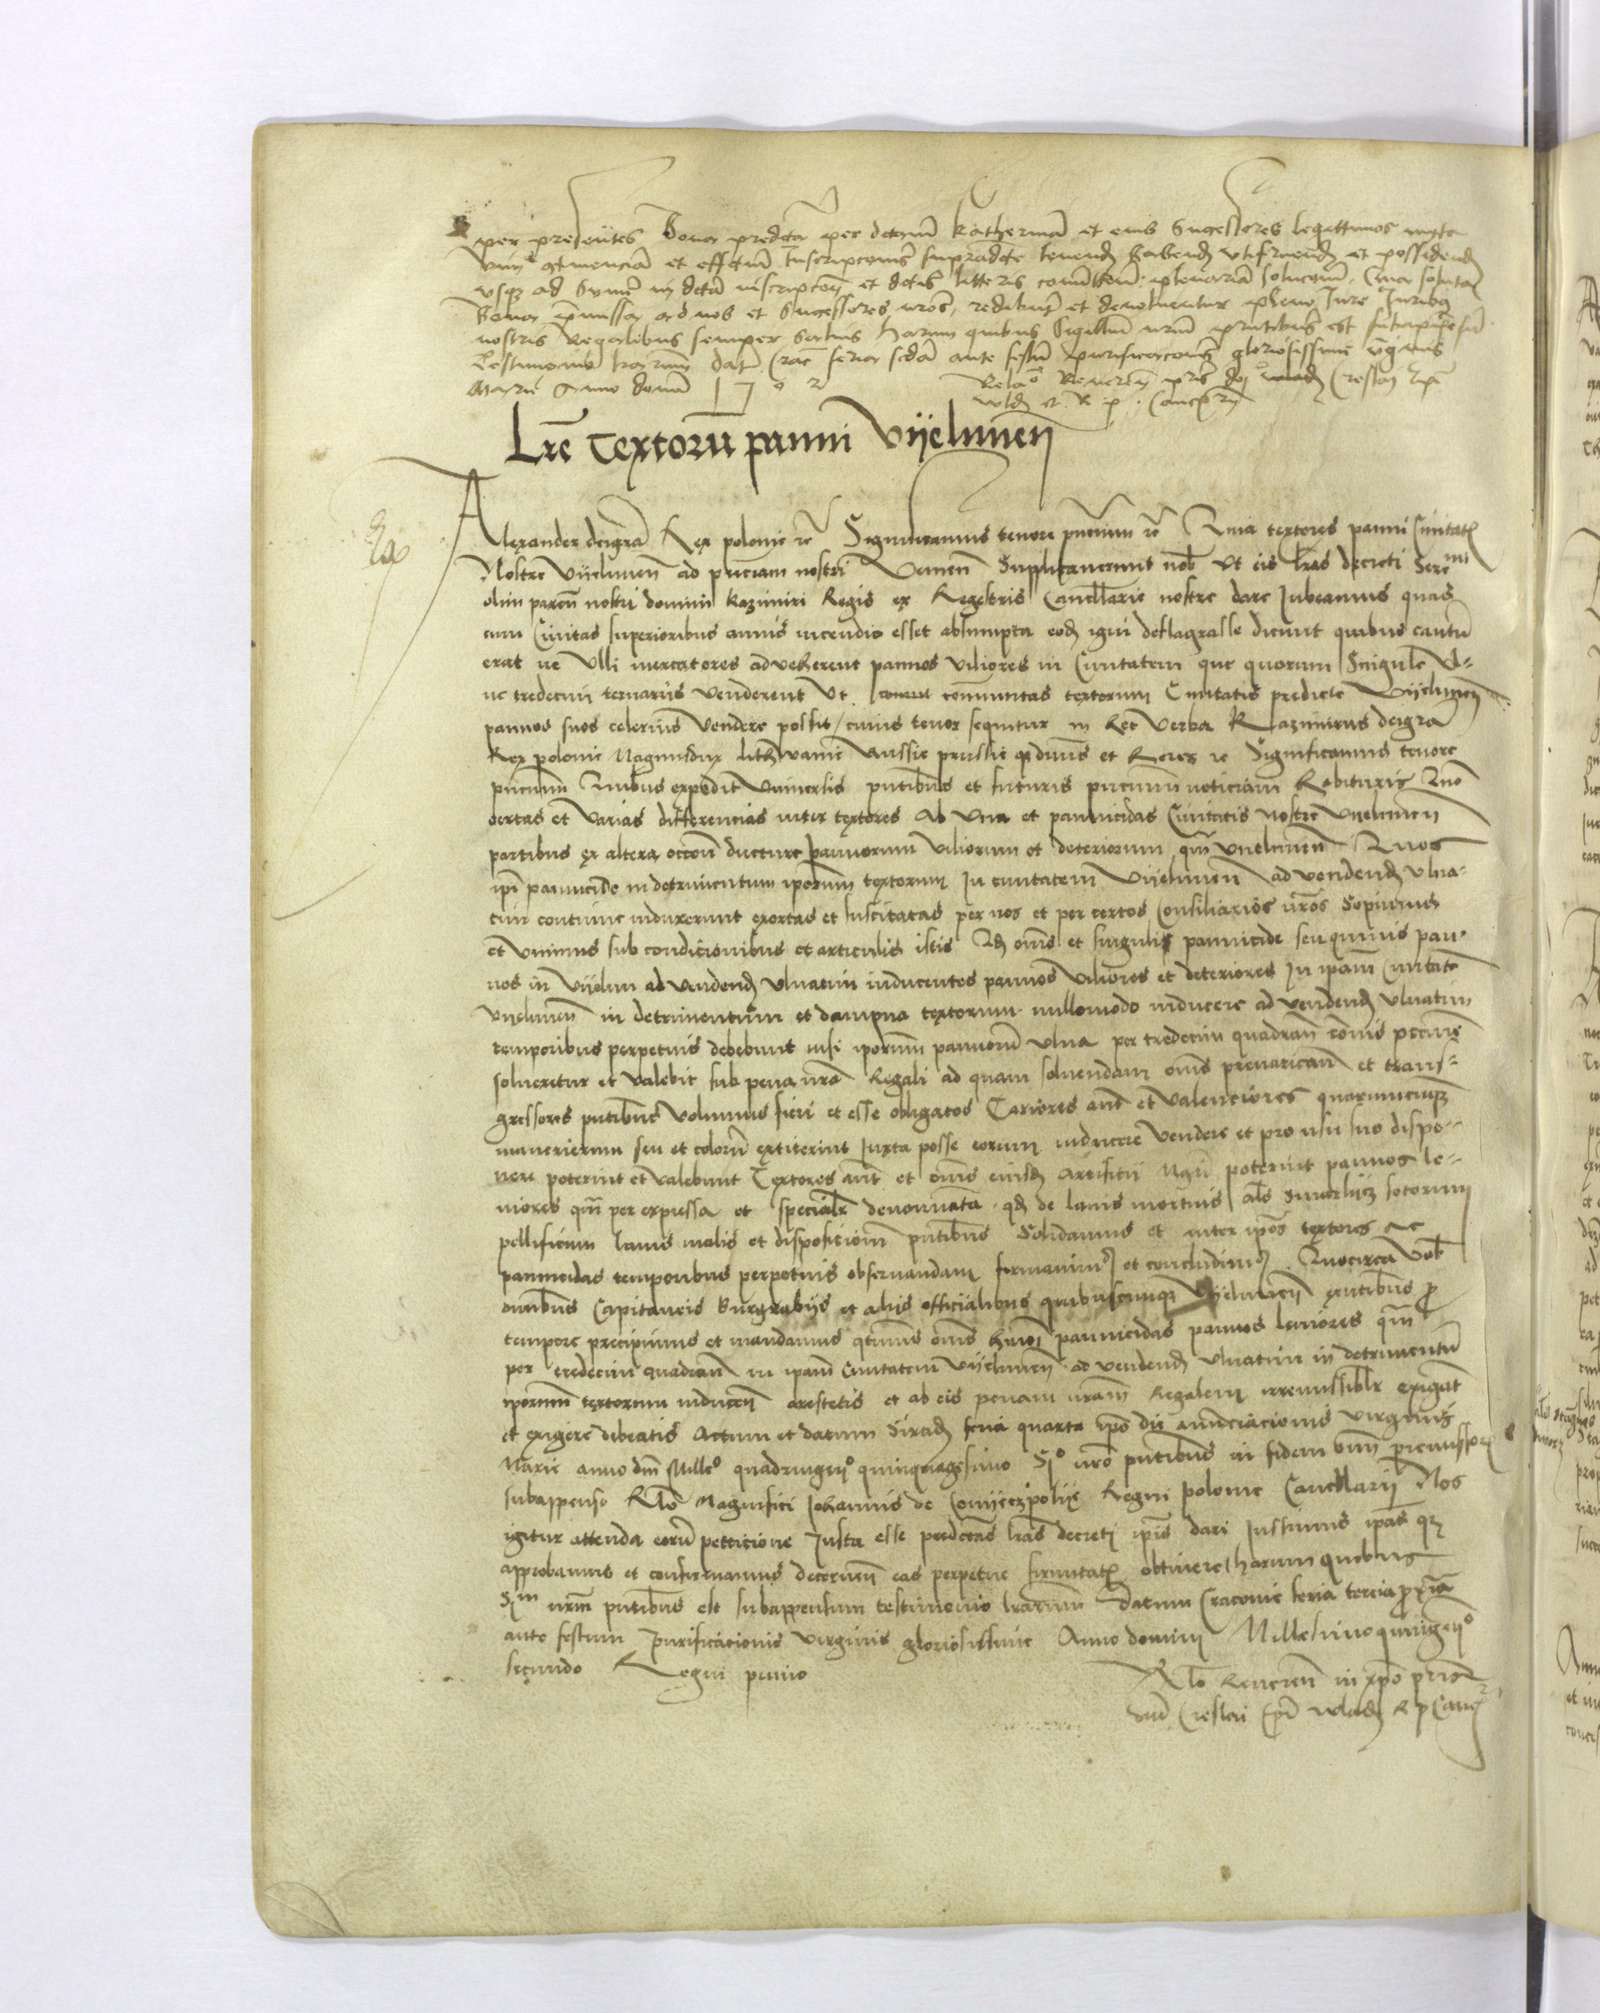 per presentes Bona predcta per dctam katherinã et eius Sucessores legittimos iuxta
vim gtinenciã et effctum Inscripconis supradcte tenend habend vtifruend et possidend
vsqz ad Summe in dcta inscripcone et dctis litteris contente plenariã solucom. Qua soluta
Bona pmissa ad nos et Sucessores nros, redibunt et devoluentur pleno Jure Juribus
nostris Regalibus semper saluis harum quibus Sigillum nrm pntibus est
Testimonio lrarum Dat Crac feria scda ante festũ purificaconis gloriosissime vgins
Marie Anno domi
Relao Reueren pris dni Creslai Epi
wlad et R p Cancrij
Lre Textorũ panni Vijelunien
Alexander deigra Rex polonie rc Significamus tenore pncium rc Quia textores panni Ciuitatis
Nostre Vijelunien ad pnciam nostri venien Supplicauerunt nob Vt eis lras decreti Sermi
olim parentis nostri domini kazimiri Regis ex Regestris Cancellarie nostre dare Iubeamus quas
cum Ciuitas superioribus annis incendio esset absumpta eod igni deflagrasse dicunt quibus cautũ
erat ne Vlli mercatores adueherent pannos viliores in Ciuitatem que quorum Singule Vl-
ne tredecim ternarijs venderent Vt comunitas textorum Ciuitatis predicte Vijelunien
pannos suos celerius vendere possit, cuius tenor sequitur in hec verba Kazimirus deigra
Rex polonie Magnusdux lithwanie Russie prussie qz dnus et heres rc Significamus tenore
pncium Quibus expedit Vniuersis pntibus et futuris pncium noticiam habituris Quo
certas et varias differencias inter textores Ab Vna et pannicidas Ciuitatis nostre Vijelunien
partibus ex altera occone ducture pannorum viliorum et deteriorum qm vijelunien Quos
ipi pannicide in detrimentum iporum textorum In ciuitatem Vijelunien ad vendend vlna-
tim continue induxerunt exortas et suscitatas per nos et per certos Consiliarios nros Sopiuimus
et vnimus sub condicionibus et articulis istis Qz oms et singuli pannicide seu quiuis pan-
nos in vijelun ad vendend vlnatim inducentes pannos viliores et deteriores In ipam Ciuitatē
vijelunien in detrimentum et dampna textorum nullomodo inducere ad vendend vlnatim
temporibus perpetuis debebunt nisi iporum pannorũ vlna per tredecim quadran cois pecunie
solueretur et valebit sub pena nra Regali ad quam soluendam oms preuaricam et trans-
gressores pntibus volumus fieri et esse obligatos Cariores aut et valenciores quarumcunqz
manerierum seu et colorũ extiterint Iuxta posse eorum inducere vendere et pro usu suo dispo-
nere poterint et valebunt Textores aut et oms eiusd artificij Nqui poterint pannos le-
niores qm per expressa et specialr denominata qz de lanis mortuis als
pellificum lanis malis et disposicione pntibus Solidamus et inter ipos textores ac
pannicidas temporibus perpetuis obseruandam firmauim9 et concludim9 Quocirca vob
omnibus Capitaneis Burgrabijs et alijs officialibus quibuscunqz Vijelunien exntibus pro
tempore precipimus et mandamus qtinus oms huioi pannicidas pannos leniores qm
per tredecim quadran in ipam Ciuitatem Vijelunien ad vendend vlnatim in detrimentũ
iporum textorum inducen arestetis et ab eis penam nram Regalem irremissiblr exigat
et exigere debeatis Actum et datum Sirad feria quarta ipo die anuncciacionis virginis
Marie anno dni Milleo quadringeno quinquagesimo Sigo nro pntibus in fidem omi premissorum
subappenso Rlo Magnifici Johannis de Conijeczpolije Regni polonie Cancellarij Nos
igitur attenta eorũ petticione Justa esse predctas lras decreti ipis dari Iussimus ipas qz
approbamus et confirmamus decernen eas perpetue firmitatis obtinere harum quibus
Sigm nrm pntibus est subappensum testimonio lrarum Datum Cracouie feria tercia proxia
ante festum purificationis virginis gloriosissime Anno domini Millesimoquingeno
secundo Regni primo
Rlo Reueren in xpo pris
dni Creslai Epi wlad R p Canc